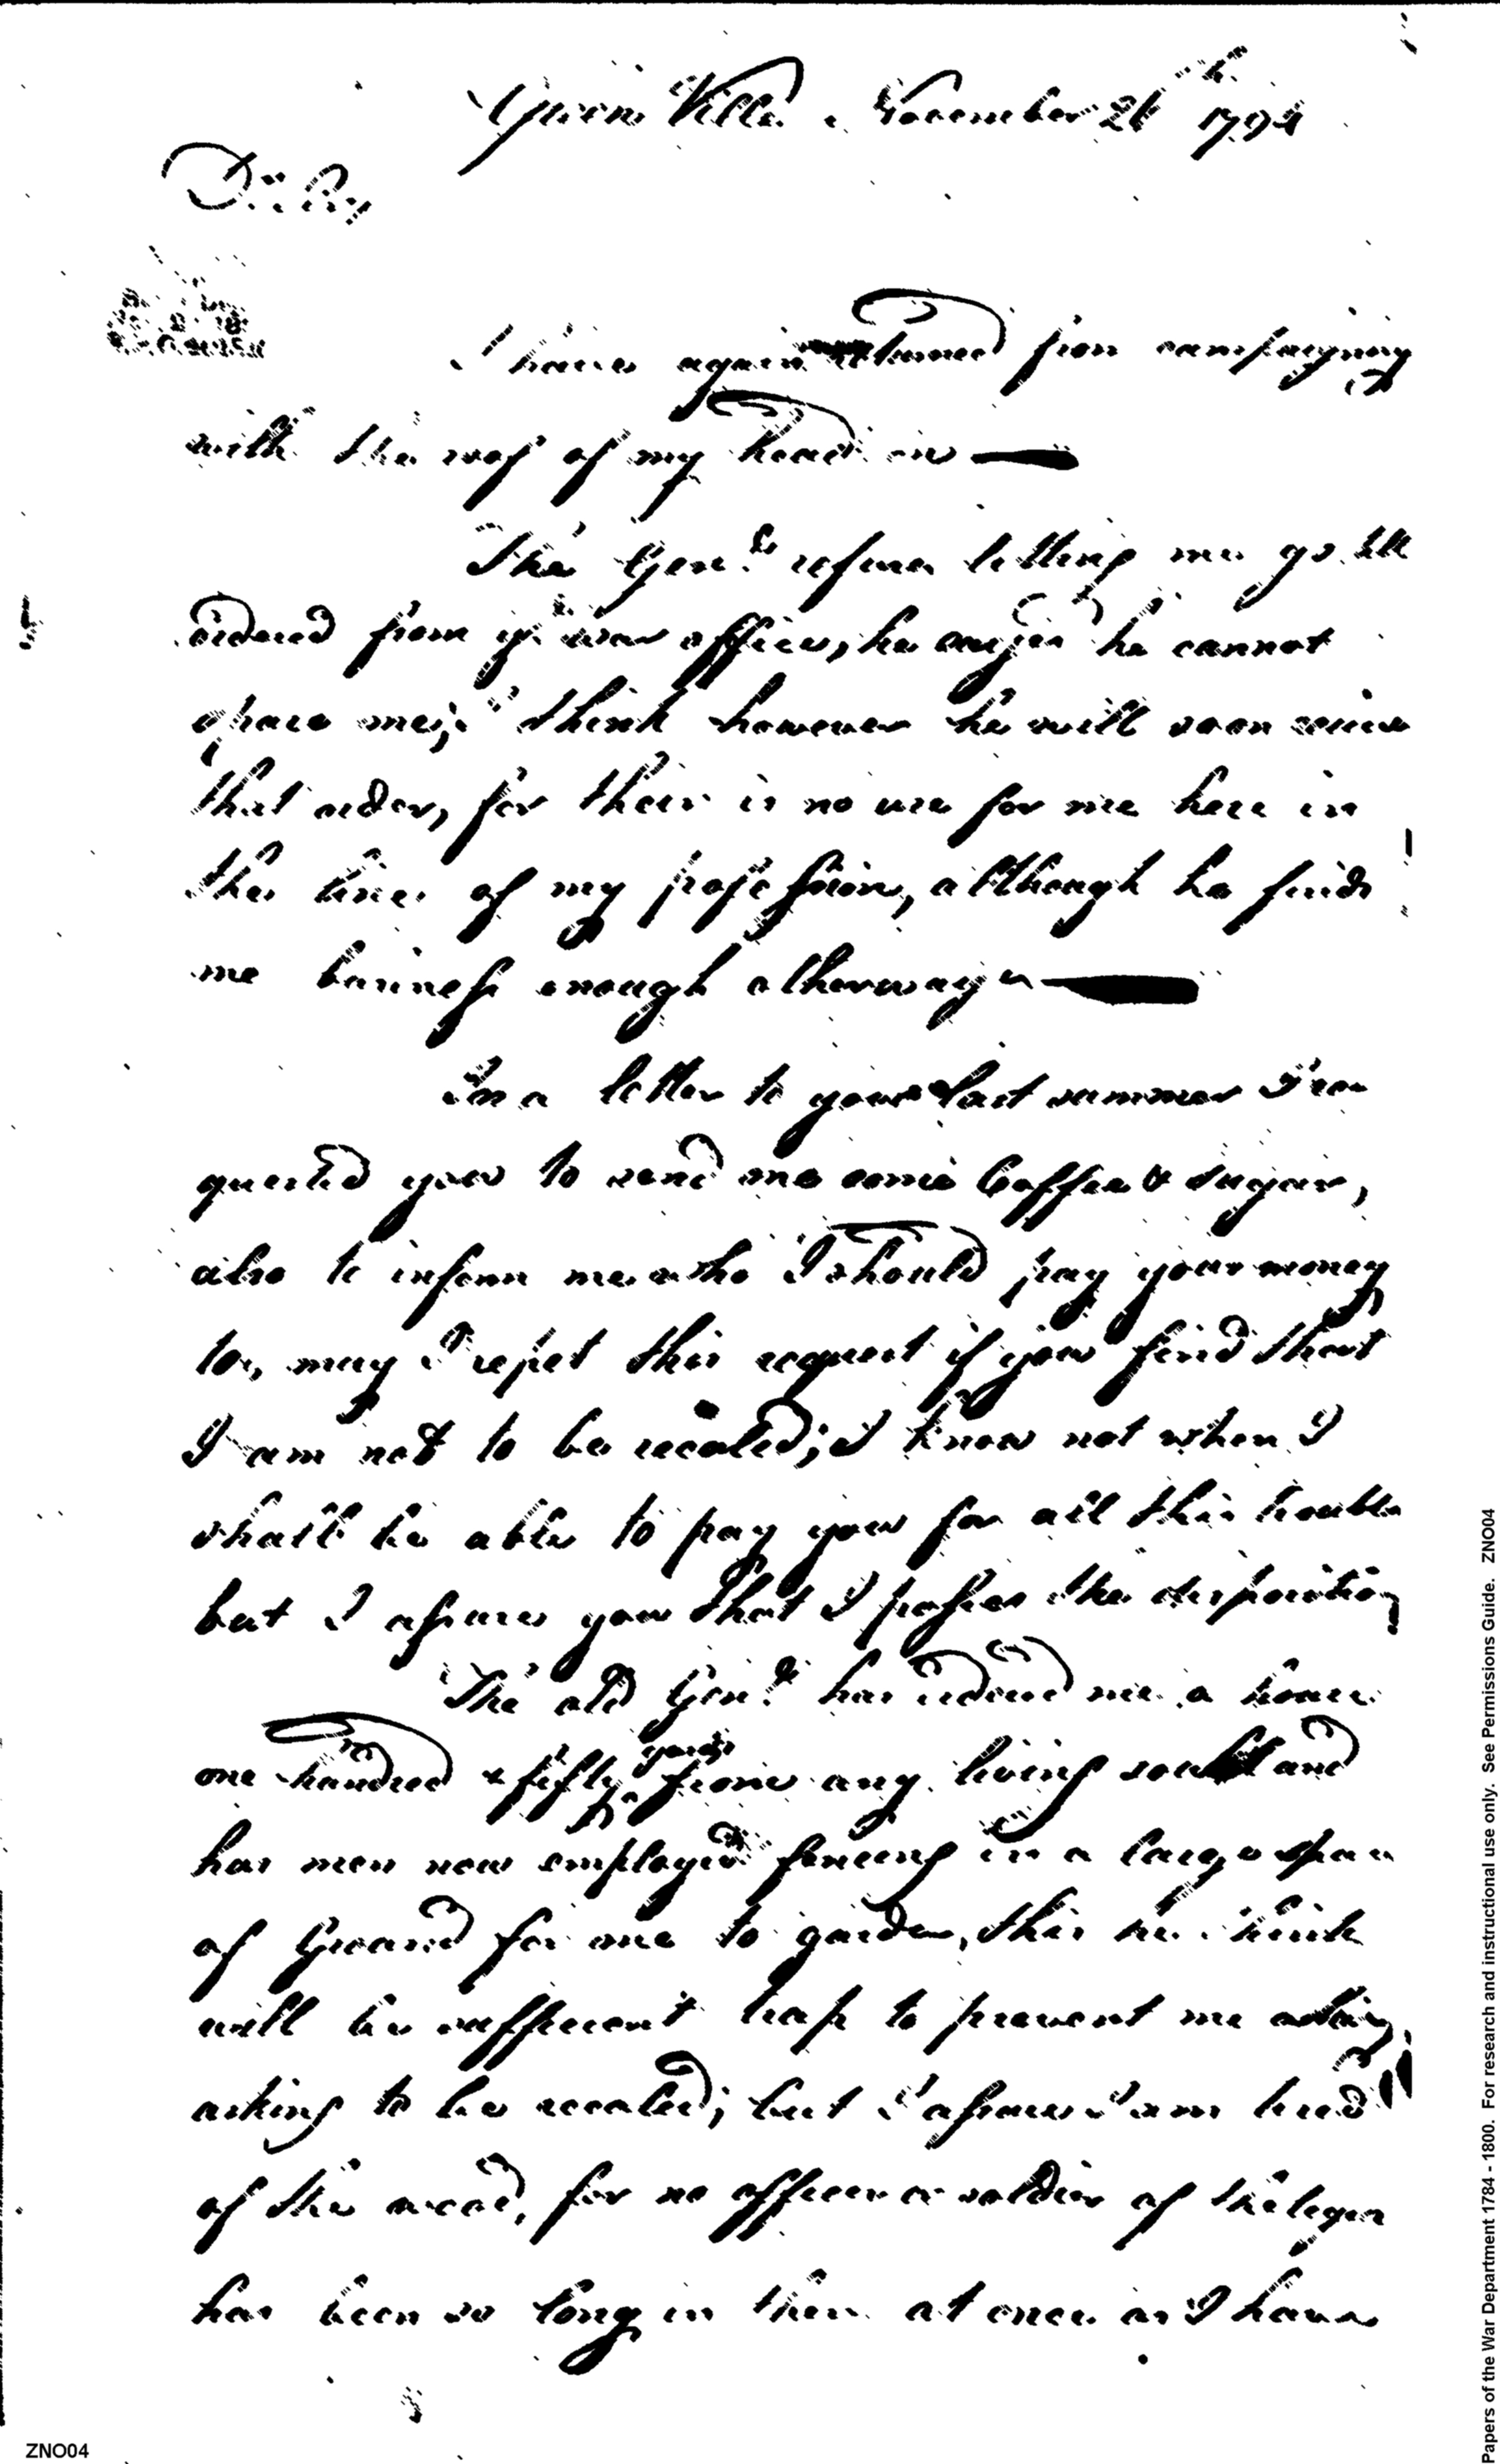 Green Ville November 26th 1794
Dr. Sir
I have again returned from campaigning
with the wof of my head on
The Genl. refuses letting me go till
ordered from ye war office, he sayes he cannot
spare me; I think however he will soon receive
that order, for their is no use for me here in
the line of my profession, although he finds
me business enough otherwayes
In a letter to you last summer I re
quested you to send me some Coffee & sugar,
also to inform me who I should pay your money
to, may I repet this request if you find that
I am not to be recaled; I know not when I
shall be able to pay you for all this trouble
but I assure you that I posses the disposition
The old Genl. has ordered me a house
one hundred & fifty yards from any living soul and
has men now employed fencing in a large span
of Ground for me to garden, this he think
will be sufficient trap to prevent me
asking to be recaled; but I assure I am tired
of the wood, for no officer or soldier of the legion
has been so long in them at once as I have
ZNO04
Papers of the War Department 1784 - 1800. For research and instructional use only. See Permissions Guide. ZNO04